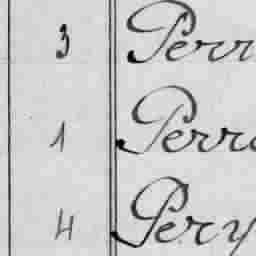 3 Perr
1 Perr
4 Pery